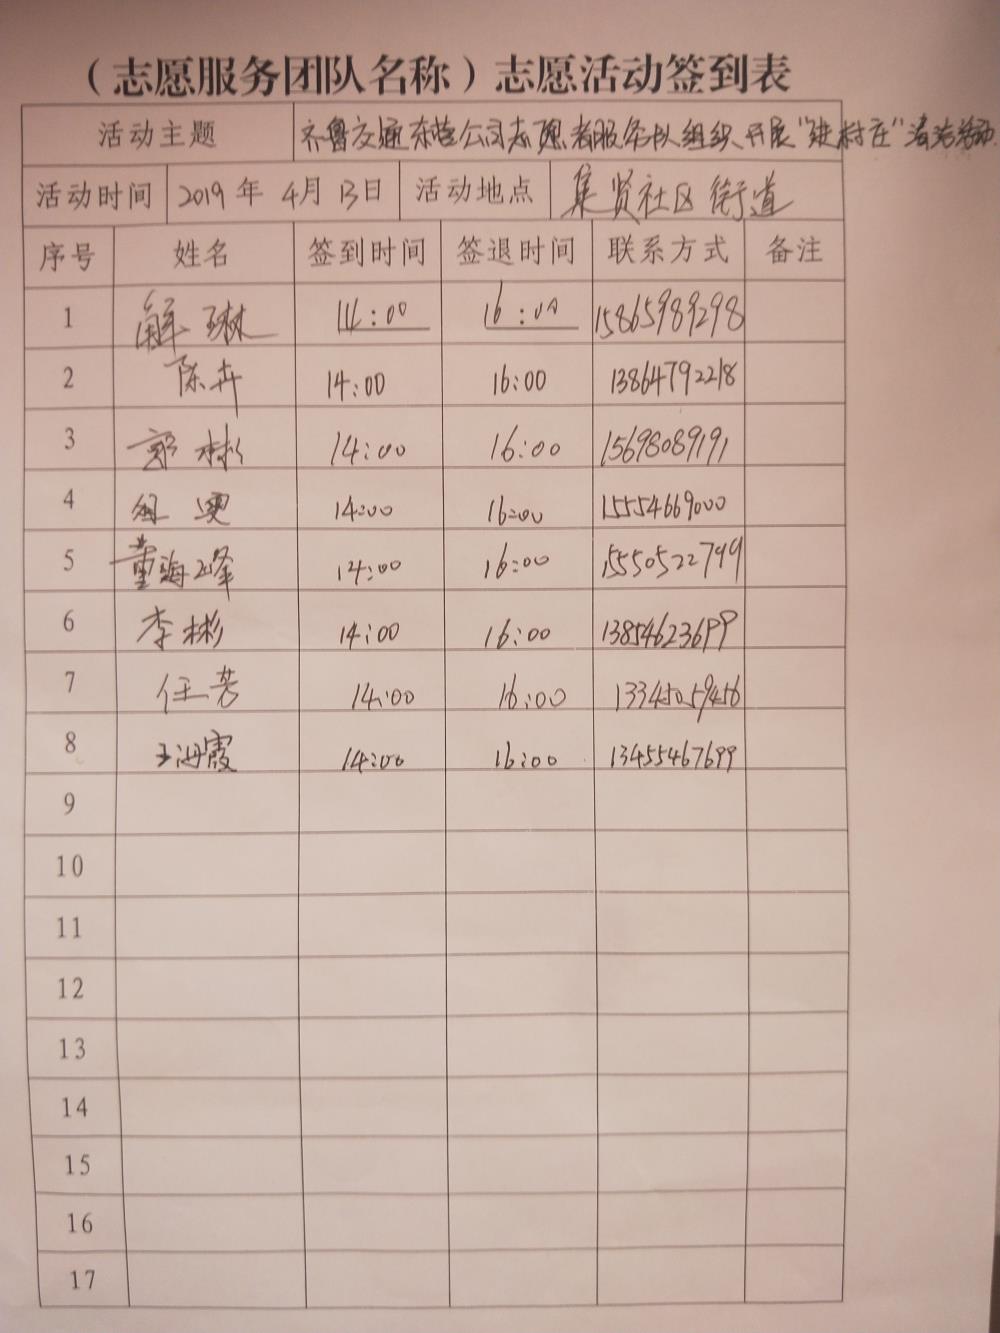 （志愿服务团队名称）志愿活动签到表
活动主题 齐鲁交通东营公司志愿者服务队组织开展“进村庄”清洁活动
活动时间 2019年 4月 13日 活动地点 集贤社区街道
序号 姓名 签到时间 签退时间 联系方式 备注
1 解琳 14:00 16:00 15865989298
2 陈卉 14:00 16:00 13864792218
3 郭彬 14:00 16:00 15698089191
4 14:00 16:00 15554669000
5 董海峰 14:00 16:00 15550522799
6 李彬 14:00 16:00 13854623699
7 任芳 14:00 16:00 13345059456
8 王海霞 14:00 16:00 13455467699
9
10
11
12
13
14
15
16
17